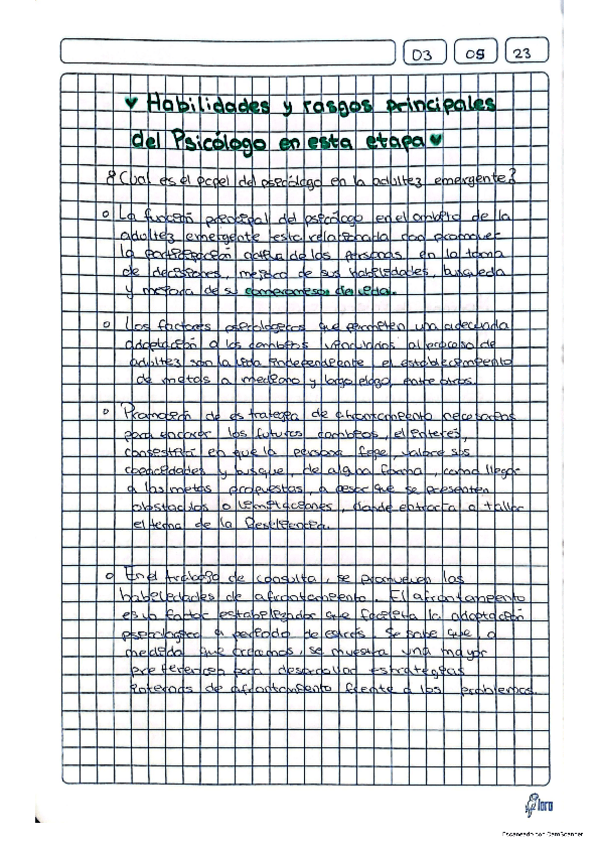 03 05 23
♥ Habilidades y rasgos principales
del Psicólogo en esta etapa ♥
¿Cual es el papel del psicólogo en la adultez emergente?
La función principal del psicólogo en el ambito de la
adultez emergente esta relacionada con promover
la participación activa de las personas en la toma
de decisiones, mejora de sus habilidades, busqueda
y mejora de su compromisos de vida.
Los factores psicologicos que permiten una adecuada
adaptación a los cambios vinculados al proceso de
adultez son la vida independiente el establecimiento
de metas a mediano y largo plazo, entre otros.
Promoción de estrategia de afrontamiento necesarias
para encarar los futuros cambios, el interés,
en que la persona forje, valore sus
capacidades y busque, de alguna forma, como llegar
a las metas propuestas, a pesar que se presenten
obstaculos o limitaciones, donde entraria a tallar
el tema de la Resiliencia.
En el trabajo de consulta, se promueven las
habilidades de afrontamiento. El afrontamiento
es un factor estabilizador que facilita la adaptación
psicologica a periodo de estrés. Se sabe que a
medida que crecemos, se muestra una mayor
preferencia para desarrollar estrategias
internas de afrontamiento frente a los problemas.
loro
Escaneado con CamScanner